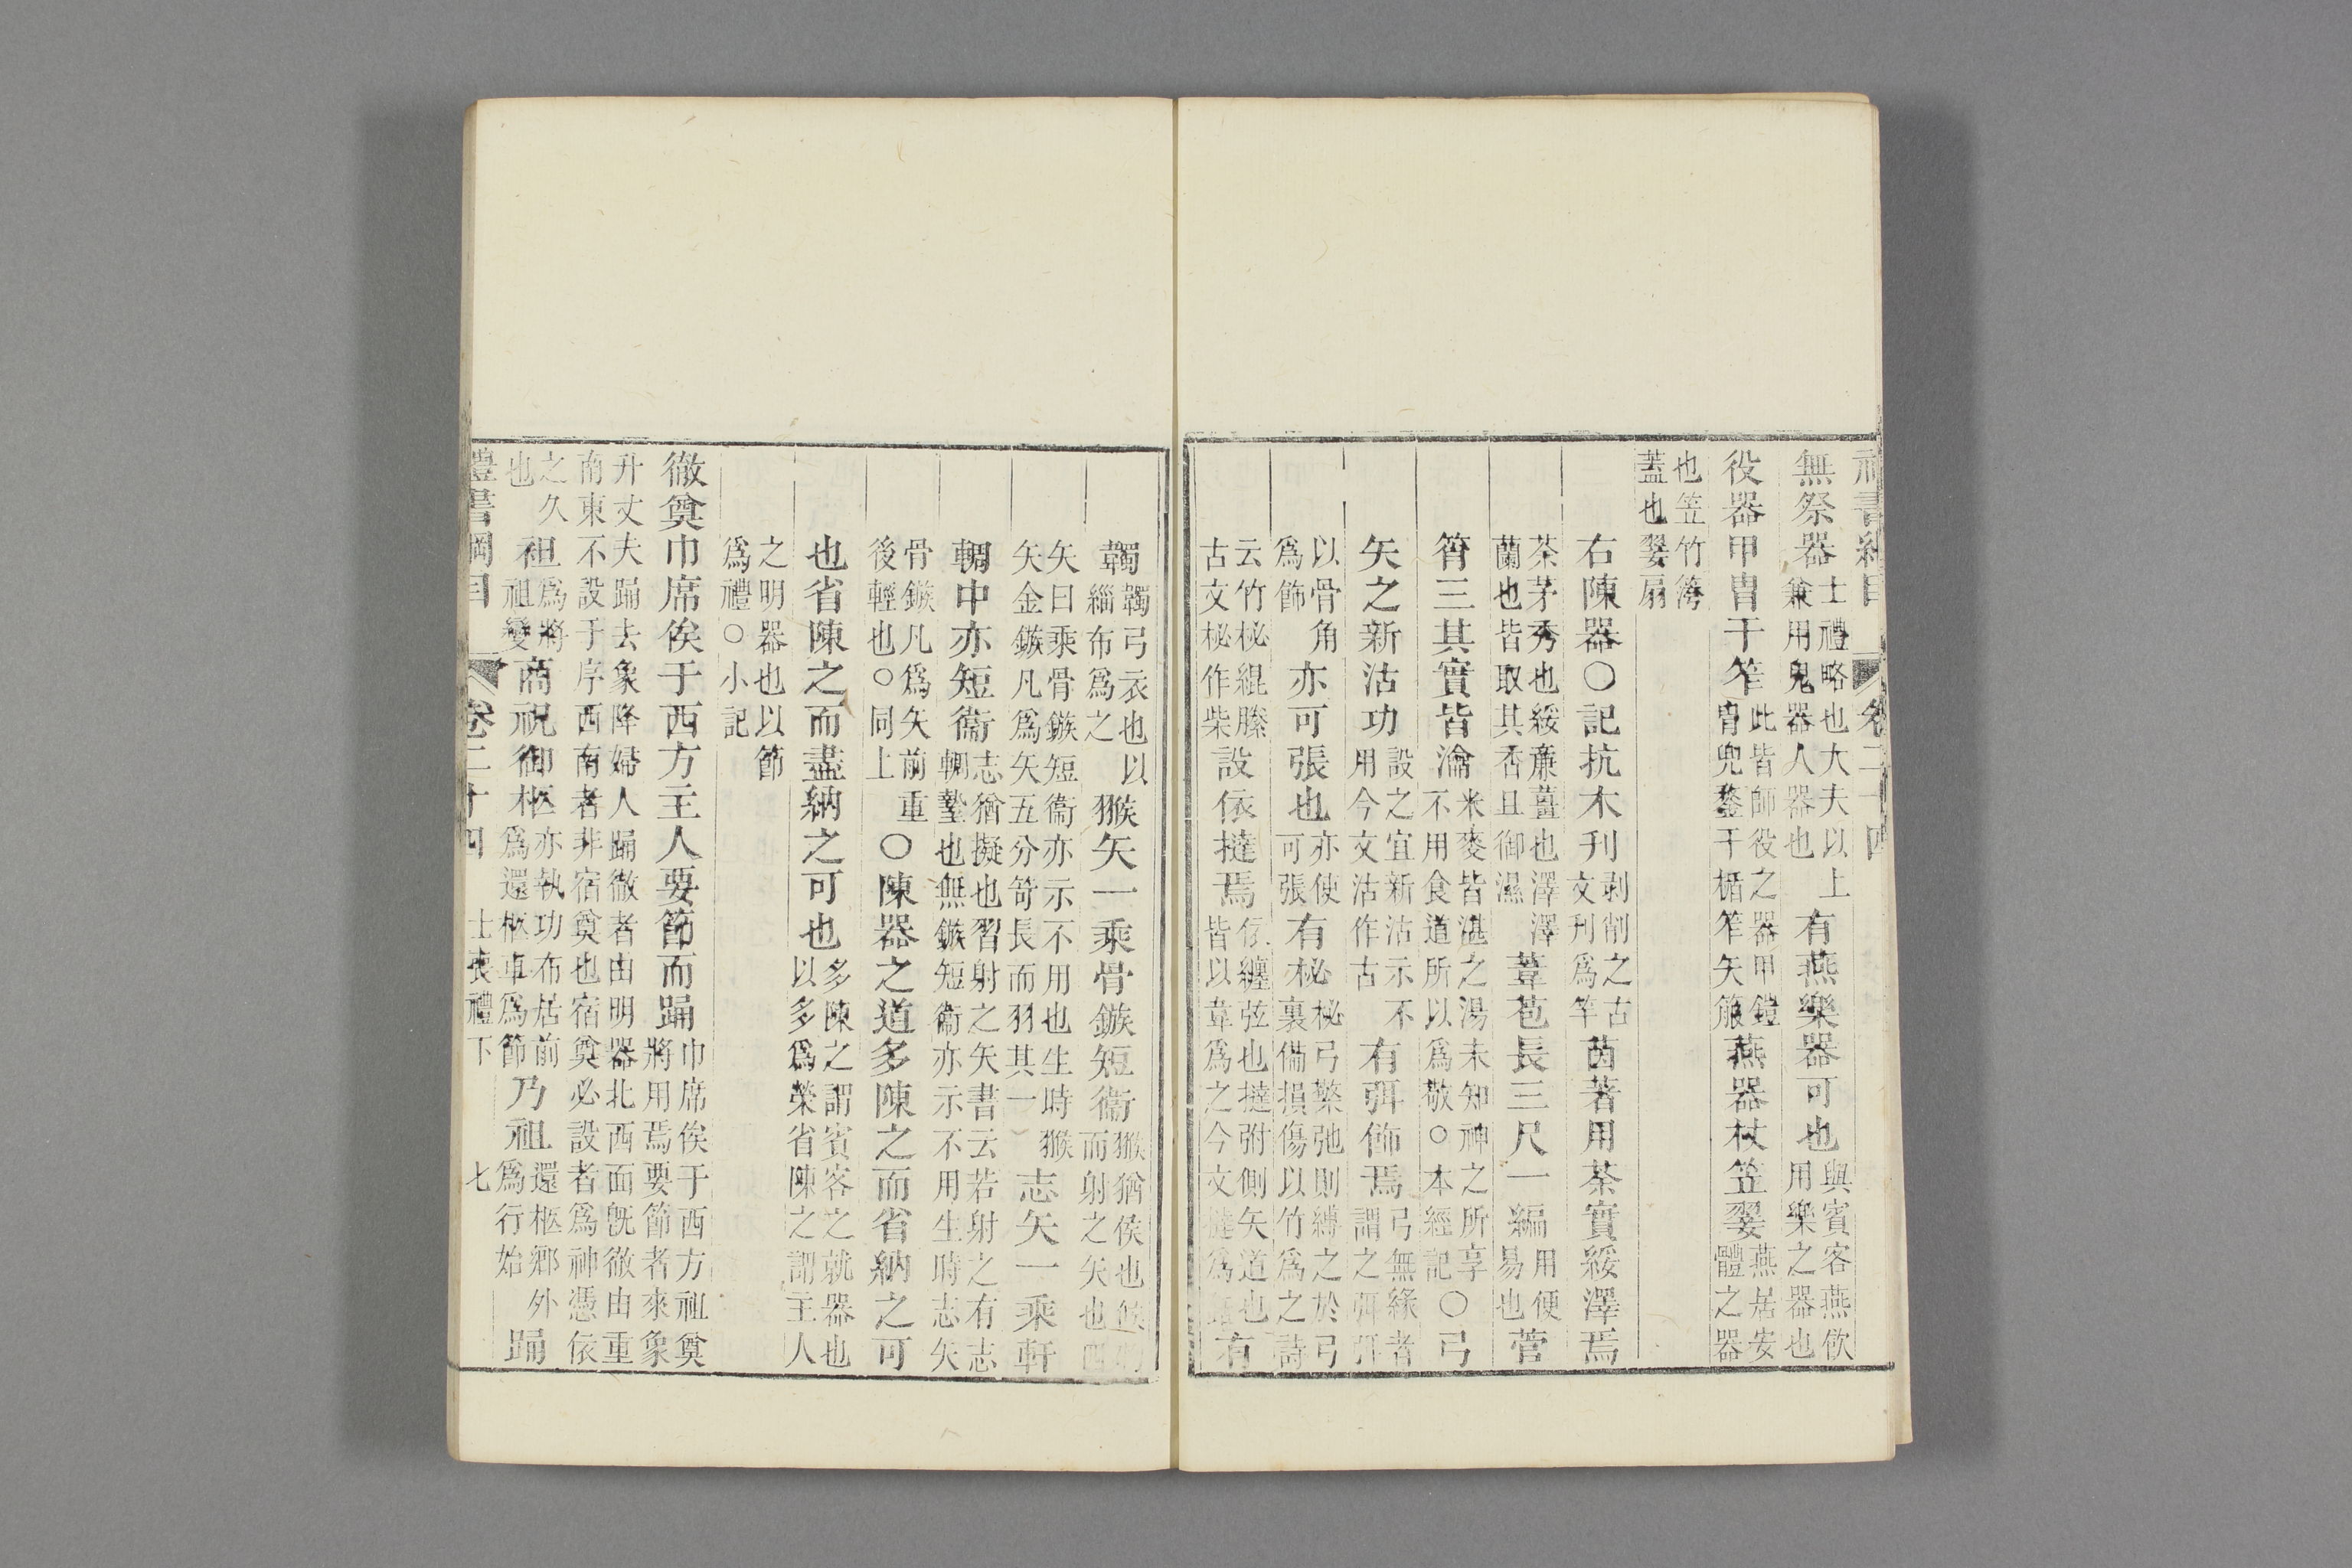 禮書綱目 卷二十四
無祭器士禮略也大夫以上兼用鬼器人器也有燕樂器可也與賓客燕飲用樂之器也
役器甲冑干笮此皆師役之器甲鎧冑兜鍪干楯笮矢箙燕器杖笠翣燕居安體之器
也笠竹䈉蓋也翣扇
右陳器○記抗木刋剥削之古文刋爲竿茵著用荼實綏澤焉
荼茅秀也綏廉薑也澤澤蘭也皆取其香且御濕葦苞長三尺一編用便易也菅
筲三其實皆瀹米麥皆湛之湯未知神之所享不用食道所以爲敬○本經記○弓
矢之新沽功設之宜新沽示不用今文沽作古有弭飾焉弓無緣者謂之弭弭
以骨角爲飾亦可張也亦使可張有柲柲弓檠弛則縛之於弓裏備損傷以竹爲之詩
云竹柲緄縢古文柲作柴設依撻焉依纏弦也撻弣側矢道也皆以韋爲之今文撻爲銛有
韣韣弓衣也以緇布爲之猴矢一乘骨鏃短衞猴猶侯也候物而射之矢也四
矢曰乘骨鏃短衞亦示不用也生時猴矢金鏃凡爲矢五分笴長而羽其一志矢一乘軒
輖中亦短衞志猶擬也習射之矢書云若射之有志輖墊也無鏃短衞亦示不用生時志矢
骨鏃凡爲矢前重後輕也○同上○陳器之道多陳之而省納之可
也省陳之而盡納之可也多陳之謂賓客之就器也以多爲榮省陳之謂主人
之明器也以節爲禮○小記
徹奠巾席俟于西方主人要節而踊巾席俟于西方祖奠將用焉要節者來象
升丈夫踊去象降婦人踊徹者由明器北西面旣徹由重南東不設于序西南者非宿奠也宿奠必設者爲神憑依
之久也袒爲將祖變商祝御柩亦執功布居前爲還柩車爲節乃祖還柩鄕外爲行始踊
禮書綱目 卷二十四 士喪禮下 七